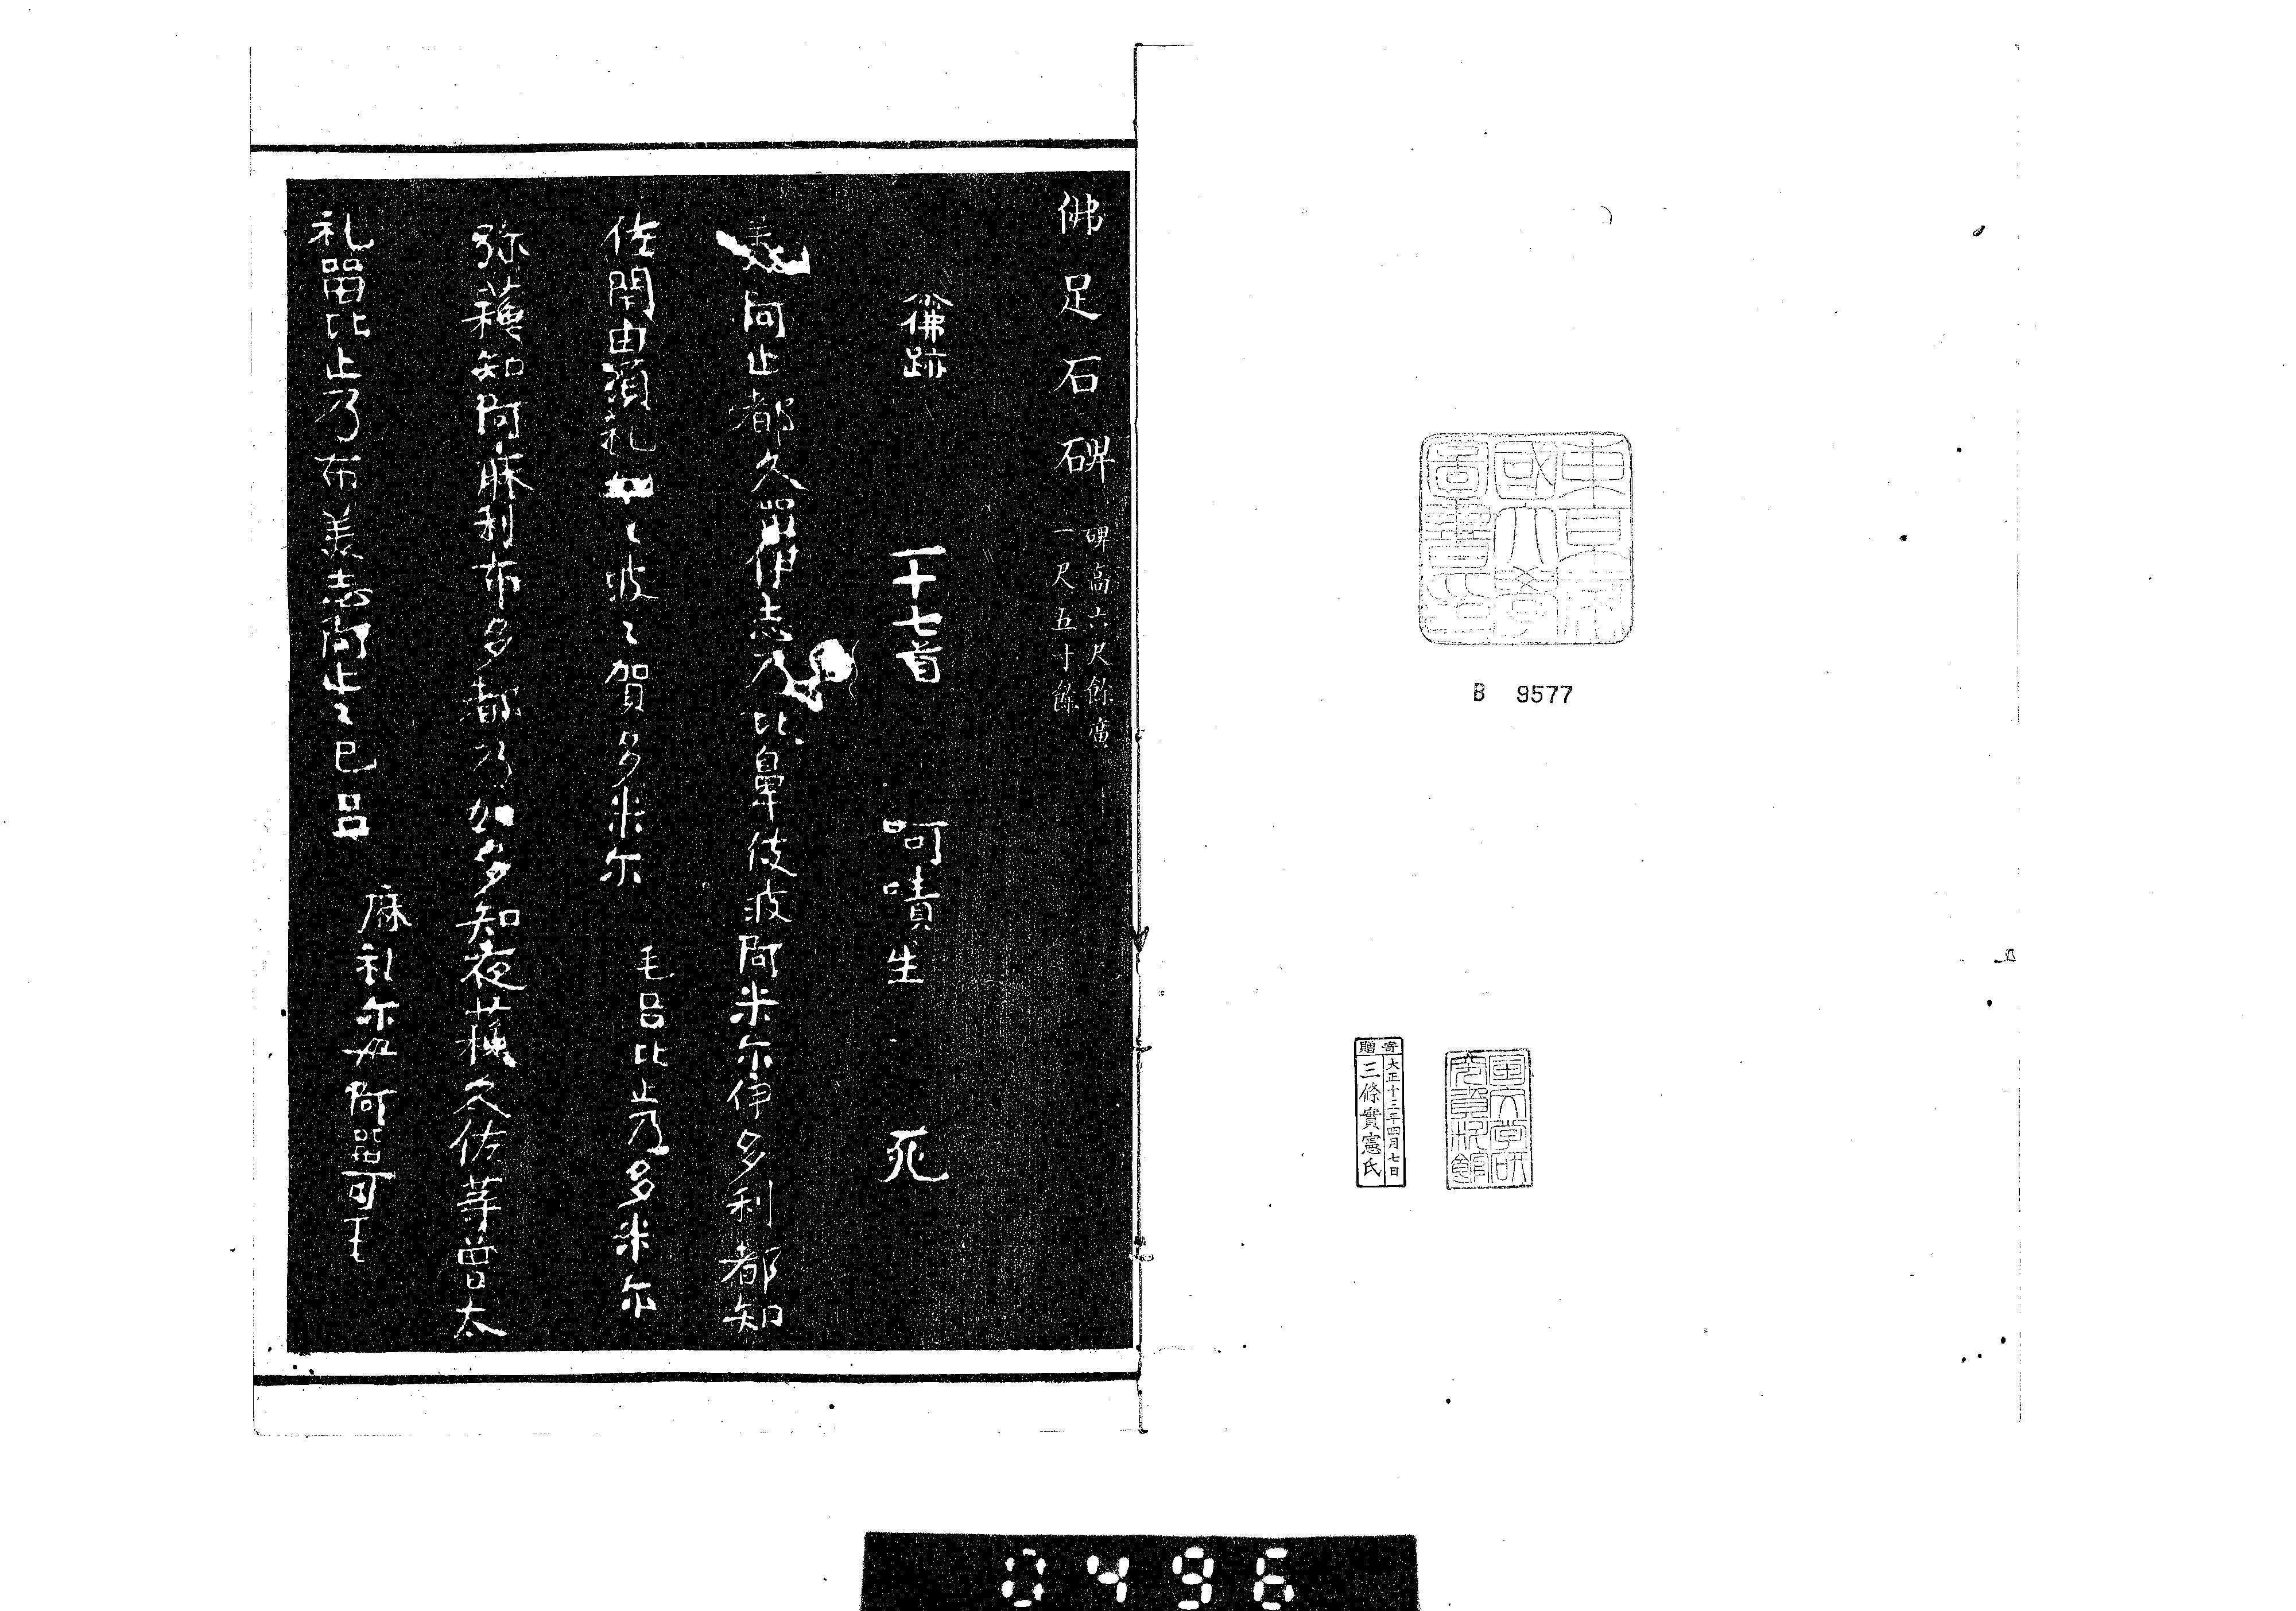 佛足石碑 碑高六尺餘廣
一尺五寸餘
佛跡 一十七首 呵嘖生 死
美阿止都久畱伊志乃比鼻伎波阿米尓伊多利都知
佐閇由須礼知〻波〻賀多米尓 毛呂比止乃多米尓
弥蘓知阿麻利布多都乃加多知夜蘓久佐等曾太
礼畱比止乃布美志阿止〻己呂 麻礼尓母阿畱可毛
東京帝
國大學
圖書印
B 9577
寄贈
大正十三年四月七日
三條實憲氏
國文学研
究資料館
0496